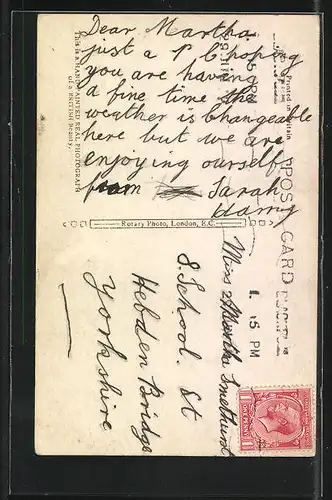 Dear Martha
just a P C hoping
you are having
a fine time the
weather is changeable
here but we are
enjoying ourself
from Sarah
Harry
This is a HAND-PAINTED REAL PHOTOGRAPH
of a BRITISH Beauty.
Rotary Photo, London, E.C.
Printed in Britain
POST CARD
5 PM
Miss Martha Smethurst
8. School. St
Hebden Bridge
Yorkshire
ONE PENNY